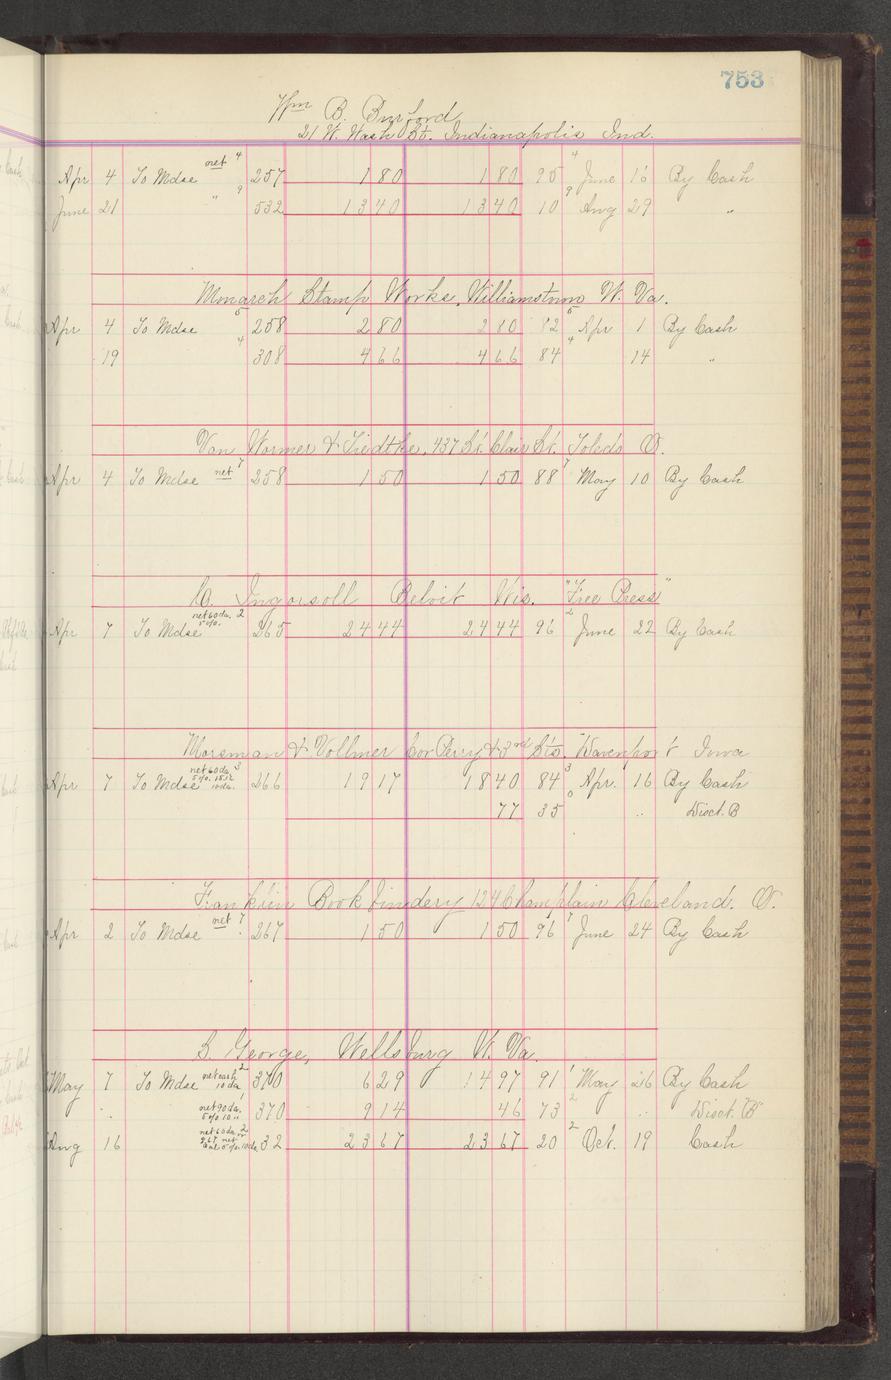 753
Wm B. Burford
21 W. Wash St. Indianapolis Ind.
Apr 4 To Mdse net 4 257 180 180 95 4 June 16 By Cash
June 21 " 9 532 1340 1340 10 9 Aug 29 "
Monarch Stamp Works, Williamstown W. Va.
Apr 4 To Mdse 5 258 280 280 82 5 Apr 1 By Cash
19 4 308 466 466 84 4 14 "
Van Wormer & Tiedtke, 437 St. Clair St. Toledo O.
Apr 4 To Mdse net 7 258 150 150 88 7 May 10 By Cash
C. Ingersoll Beloit Wis. "Free Press"
Apr 7 To Mdse net 60 da. 5% 2 265 2444 2444 96 2 June 22 By Cash
Mossman & Vollmer Cor Perry & 3rd Sts. Davenport Iowa
Apr 7 To Mdse net 60 da. 3 266 1917 1840 84 3 Apr. 16 By Cash
77 35 0 " Disct. B
Franklin Book bindery 124 Champlain Cleveland. O.
Apr 2 To Mdse net 7 267 150 150 96 7 June 24 By Cash
S. George, Wellsburg W. Va.
May 7 To Mdse net cash 10 da 2 370 629 1497 91 1 May 26 By Cash
" net 90 da. 5% 10 " 1 370 914 46 73 2 " Disct. "B"
Aug 16 net 60 da. 2 32 2367 2367 20 2 Oct. 19 Cash